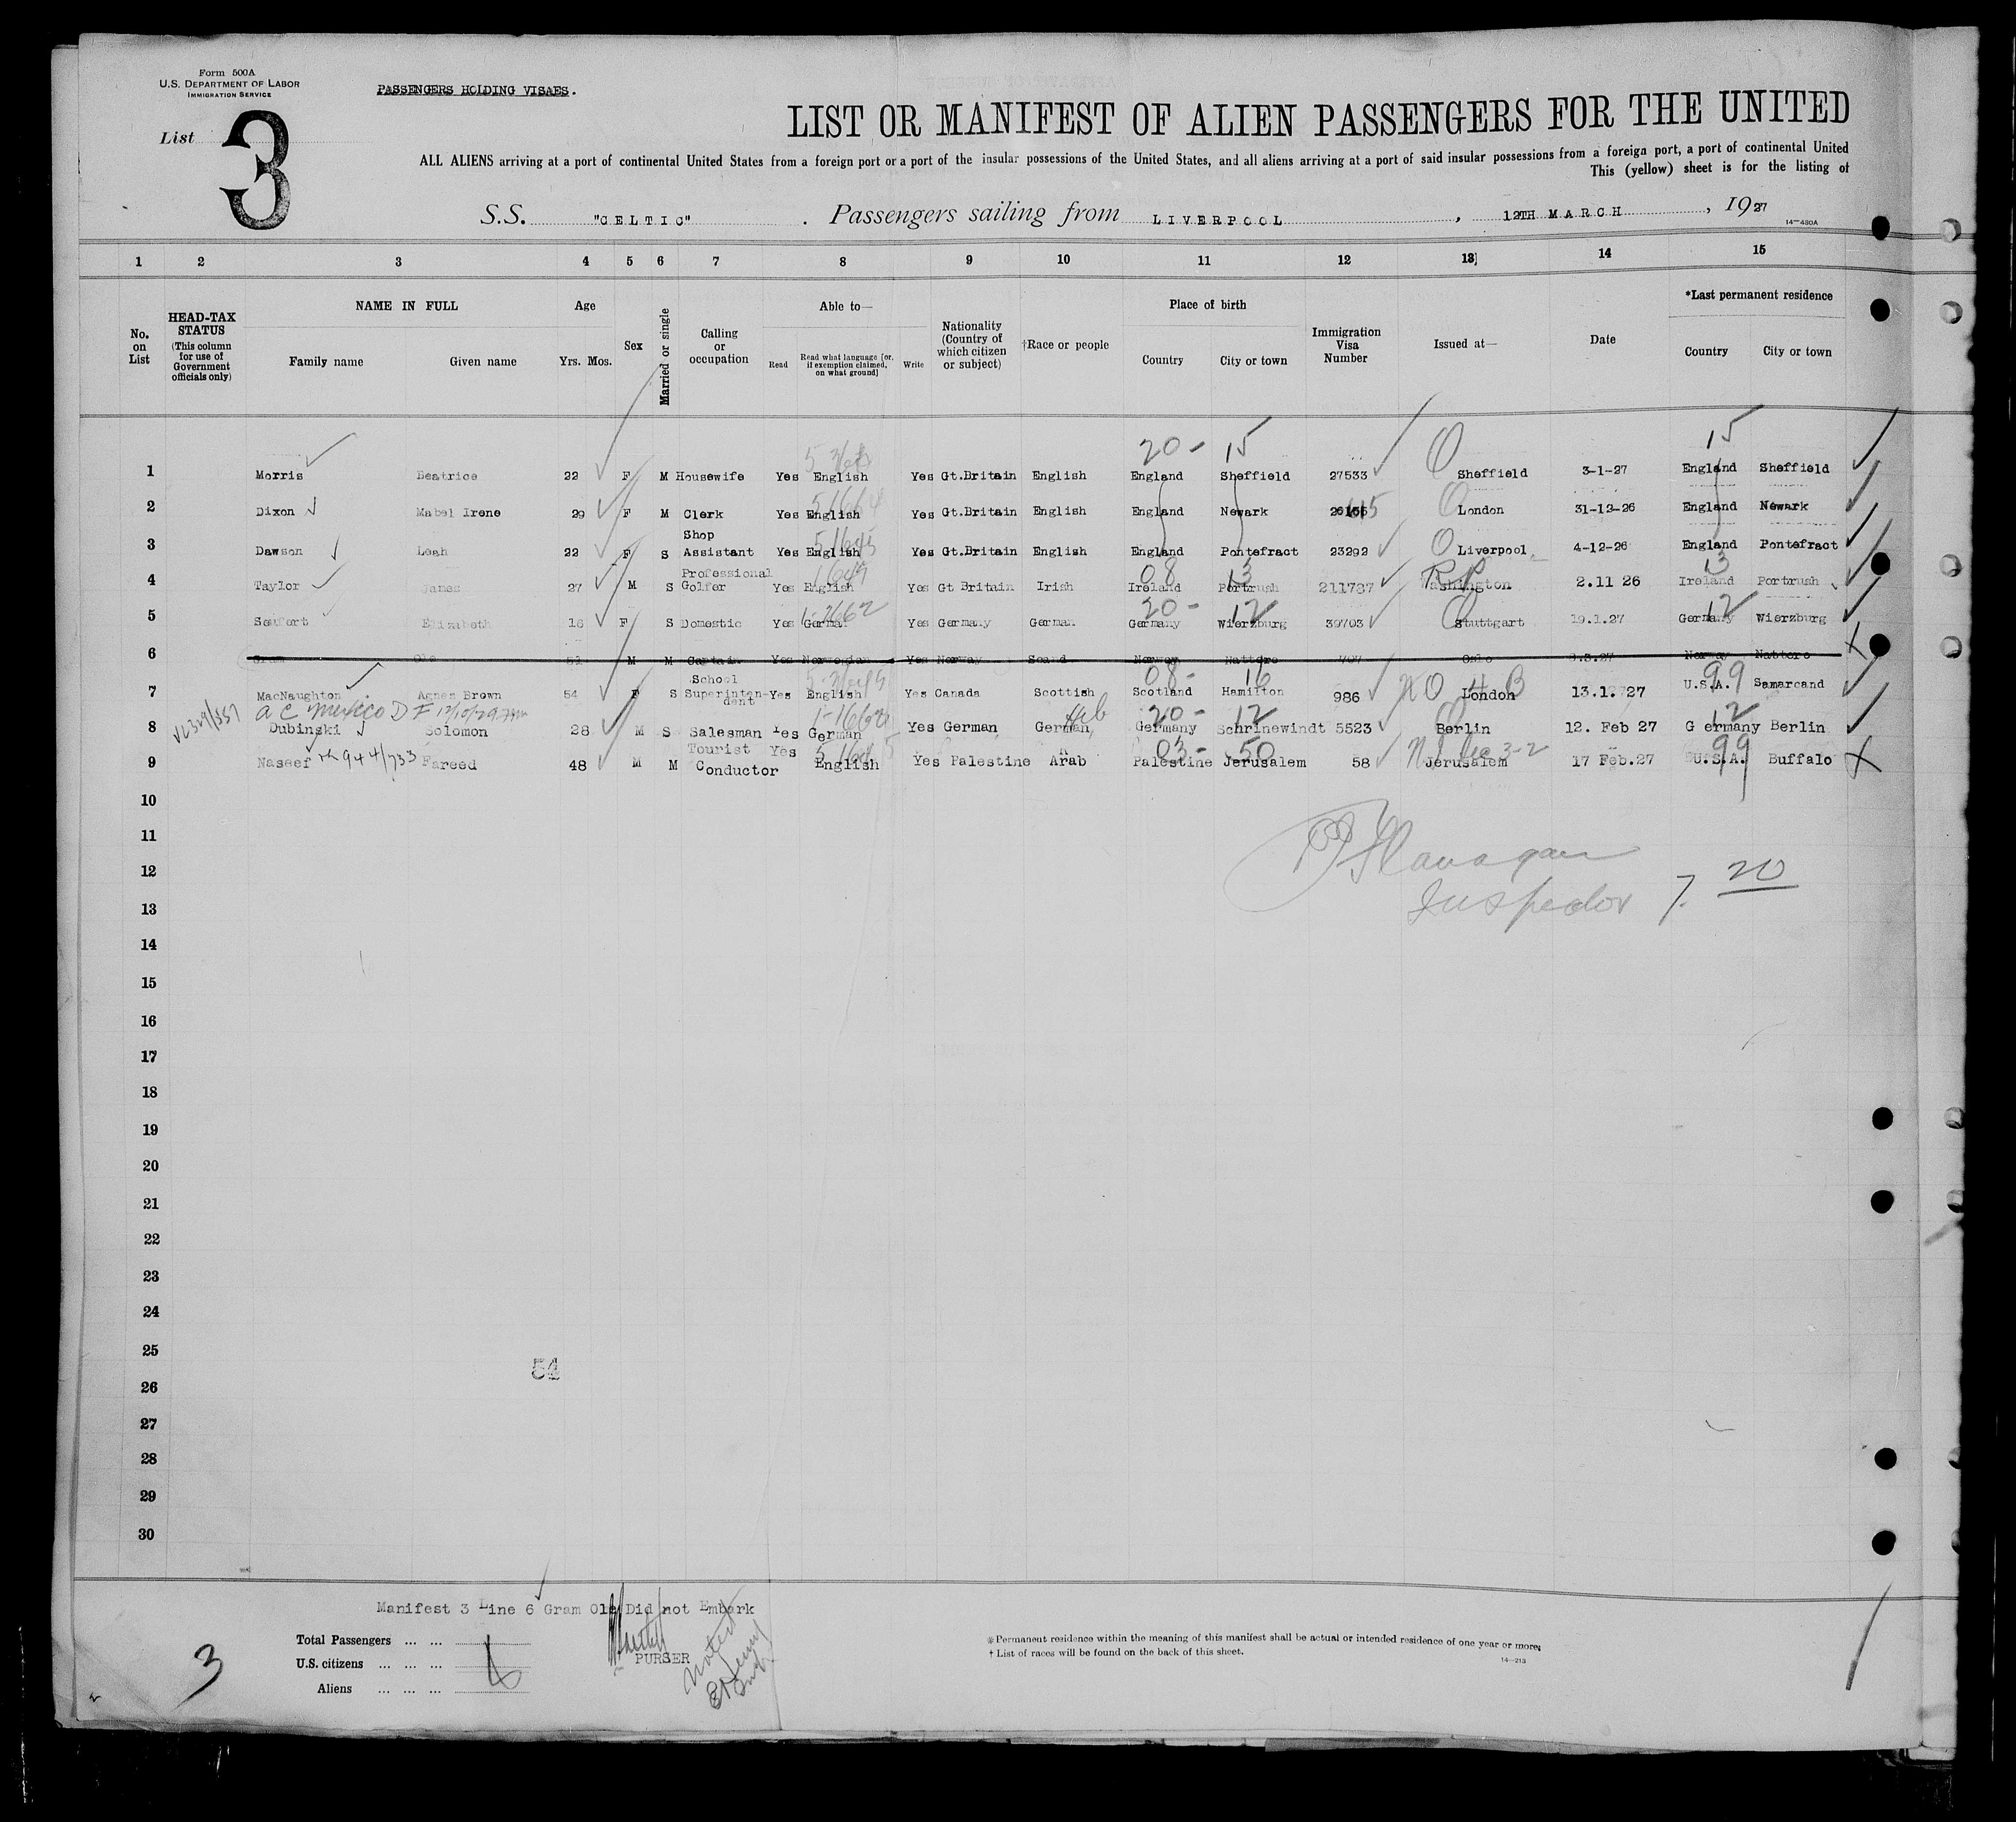 Form 500A
U.S. DEPARTMENT OF LABOR
IMMIGRATION SERVICE
PASSENGERS HOLDING VISAES.
List 3
LIST OR MANIFEST OF ALIEN PASSENGERS FOR THE UNITED
ALL ALIENS arriving at a port of continental United States from a foreign port or a port of the insular possessions of the United States, and all aliens arriving at a port of said insular possessions from a foreign port, a port of continental United
This (yellow) sheet is for the listing of
S.S. "CELTIC" . Passengers sailing from LIVERPOOL , 12TH MARCH , 1927
14—480A
1 2 3 4 5 6 7 8 9 10 11 12 13 14 15
No. on List
HEAD-TAX STATUS (This column for use of Government officials only)
NAME IN FULL
Family name Given name
Age
Yrs. Mos.
Sex
Married or single
Calling or occupation
Able to—
Read Read what language [or, if exemption claimed, on what ground] Write
Nationality (Country of which citizen or subject)
†Race or people
Place of birth
Country City or town
Immigration Visa Number
Issued at—
Date
*Last permanent residence
Country City or town
20 - 15 15
1 Morris Beatrice 22 F M Housewife Yes English Yes Gt.Britain English England Sheffield 27533 Sheffield 3-1-27 England Sheffield
2 Dixon Mabel Irene 29 F M Clerk Yes English Yes Gt.Britain English England Newark London 31-12-26 England Newark
3 Dawson Leah 22 F S Shop Assistant Yes English Yes Gt.Britain English England Pontefract 23292 Liverpool 4-12-26 England Pontefract
08 13 13
4 Taylor James 27 M S Professional Golfer Yes English Yes Gt Britain Irish Ireland Portrush 211787 Washington 2.11 26 Ireland Portrush
20 - 12 12
5 Seufert Elizabeth 16 F S Domestic Yes German Yes Germany German Germany Wierzburg 39703 Stuttgart 19.1.27 Germany Wierzburg
6 Gram Ole 51 M M Captain Yes Norwegian Yes Norway Scand Norway Oslo Norway
08 - 16 99
7 MacNaughton Agnes Brown 54 F S School Superintendent Yes English Yes Canada Scottish Scotland Hamilton 986 London 13.1.27 U.S.A. Samarcand
20 - 12 12
8 Dubinski Solomon 28 M S Salesman Yes German Yes German German Heb Germany Schrinewindt 5523 Berlin 12. Feb 27 Germany Berlin
03 - 50 99
9 Naseef Fareed 48 M M Tourist Conductor Yes English Yes Palestine Arab Palestine Jerusalem 58 Jerusalem 17 Feb.27 U.S.A. Buffalo
10
11
Flanagan
12
Inspector 7. 20
13
14
15
16
17
18
19
20
21
22
23
24
25
54
26
27
28
29
30
Manifest 3 Line 6 Gram Ole Did not Embark
Total Passengers ... ...
U.S. citizens ... ... ...
Aliens ... ... ...
PURSER
Noted
3
* Permanent residence within the meaning of this manifest shall be actual or intended residence of one year or more.
† List of races will be found on the back of this sheet.
14—213